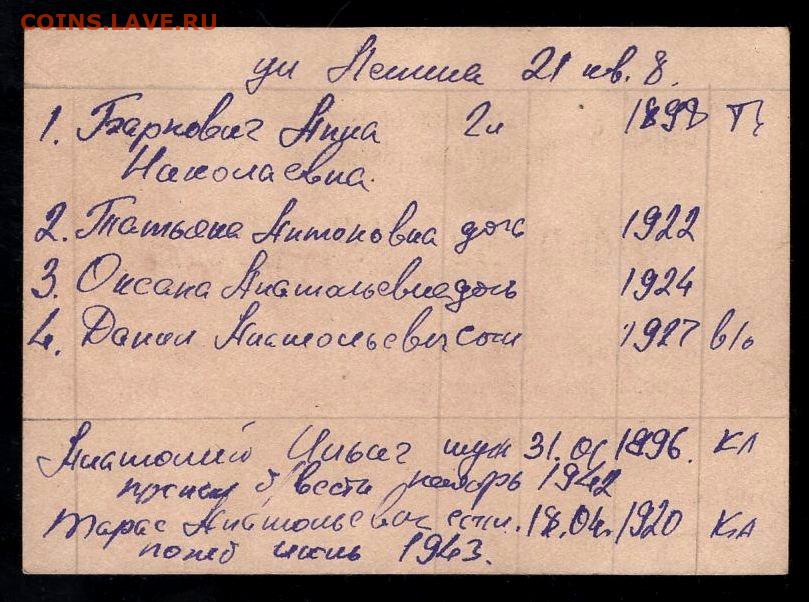 COINS.LAVE.RU
ул Ленина 21 кв. 8.
1. Баркович Анна 2л 1898 П
Николаевна.
2. Татьяна Антоновна дочь 1922
3. Оксана Анатольевна дочь 1924
4. Данил Анатольевич сын 1927 в/о
Анатолий Ильич муж 31. 1896. КЛ
б/вести ноябрь 1942
Тарас Анатольевич сын. 18.04.1920 Кл
погиб июль 1943.